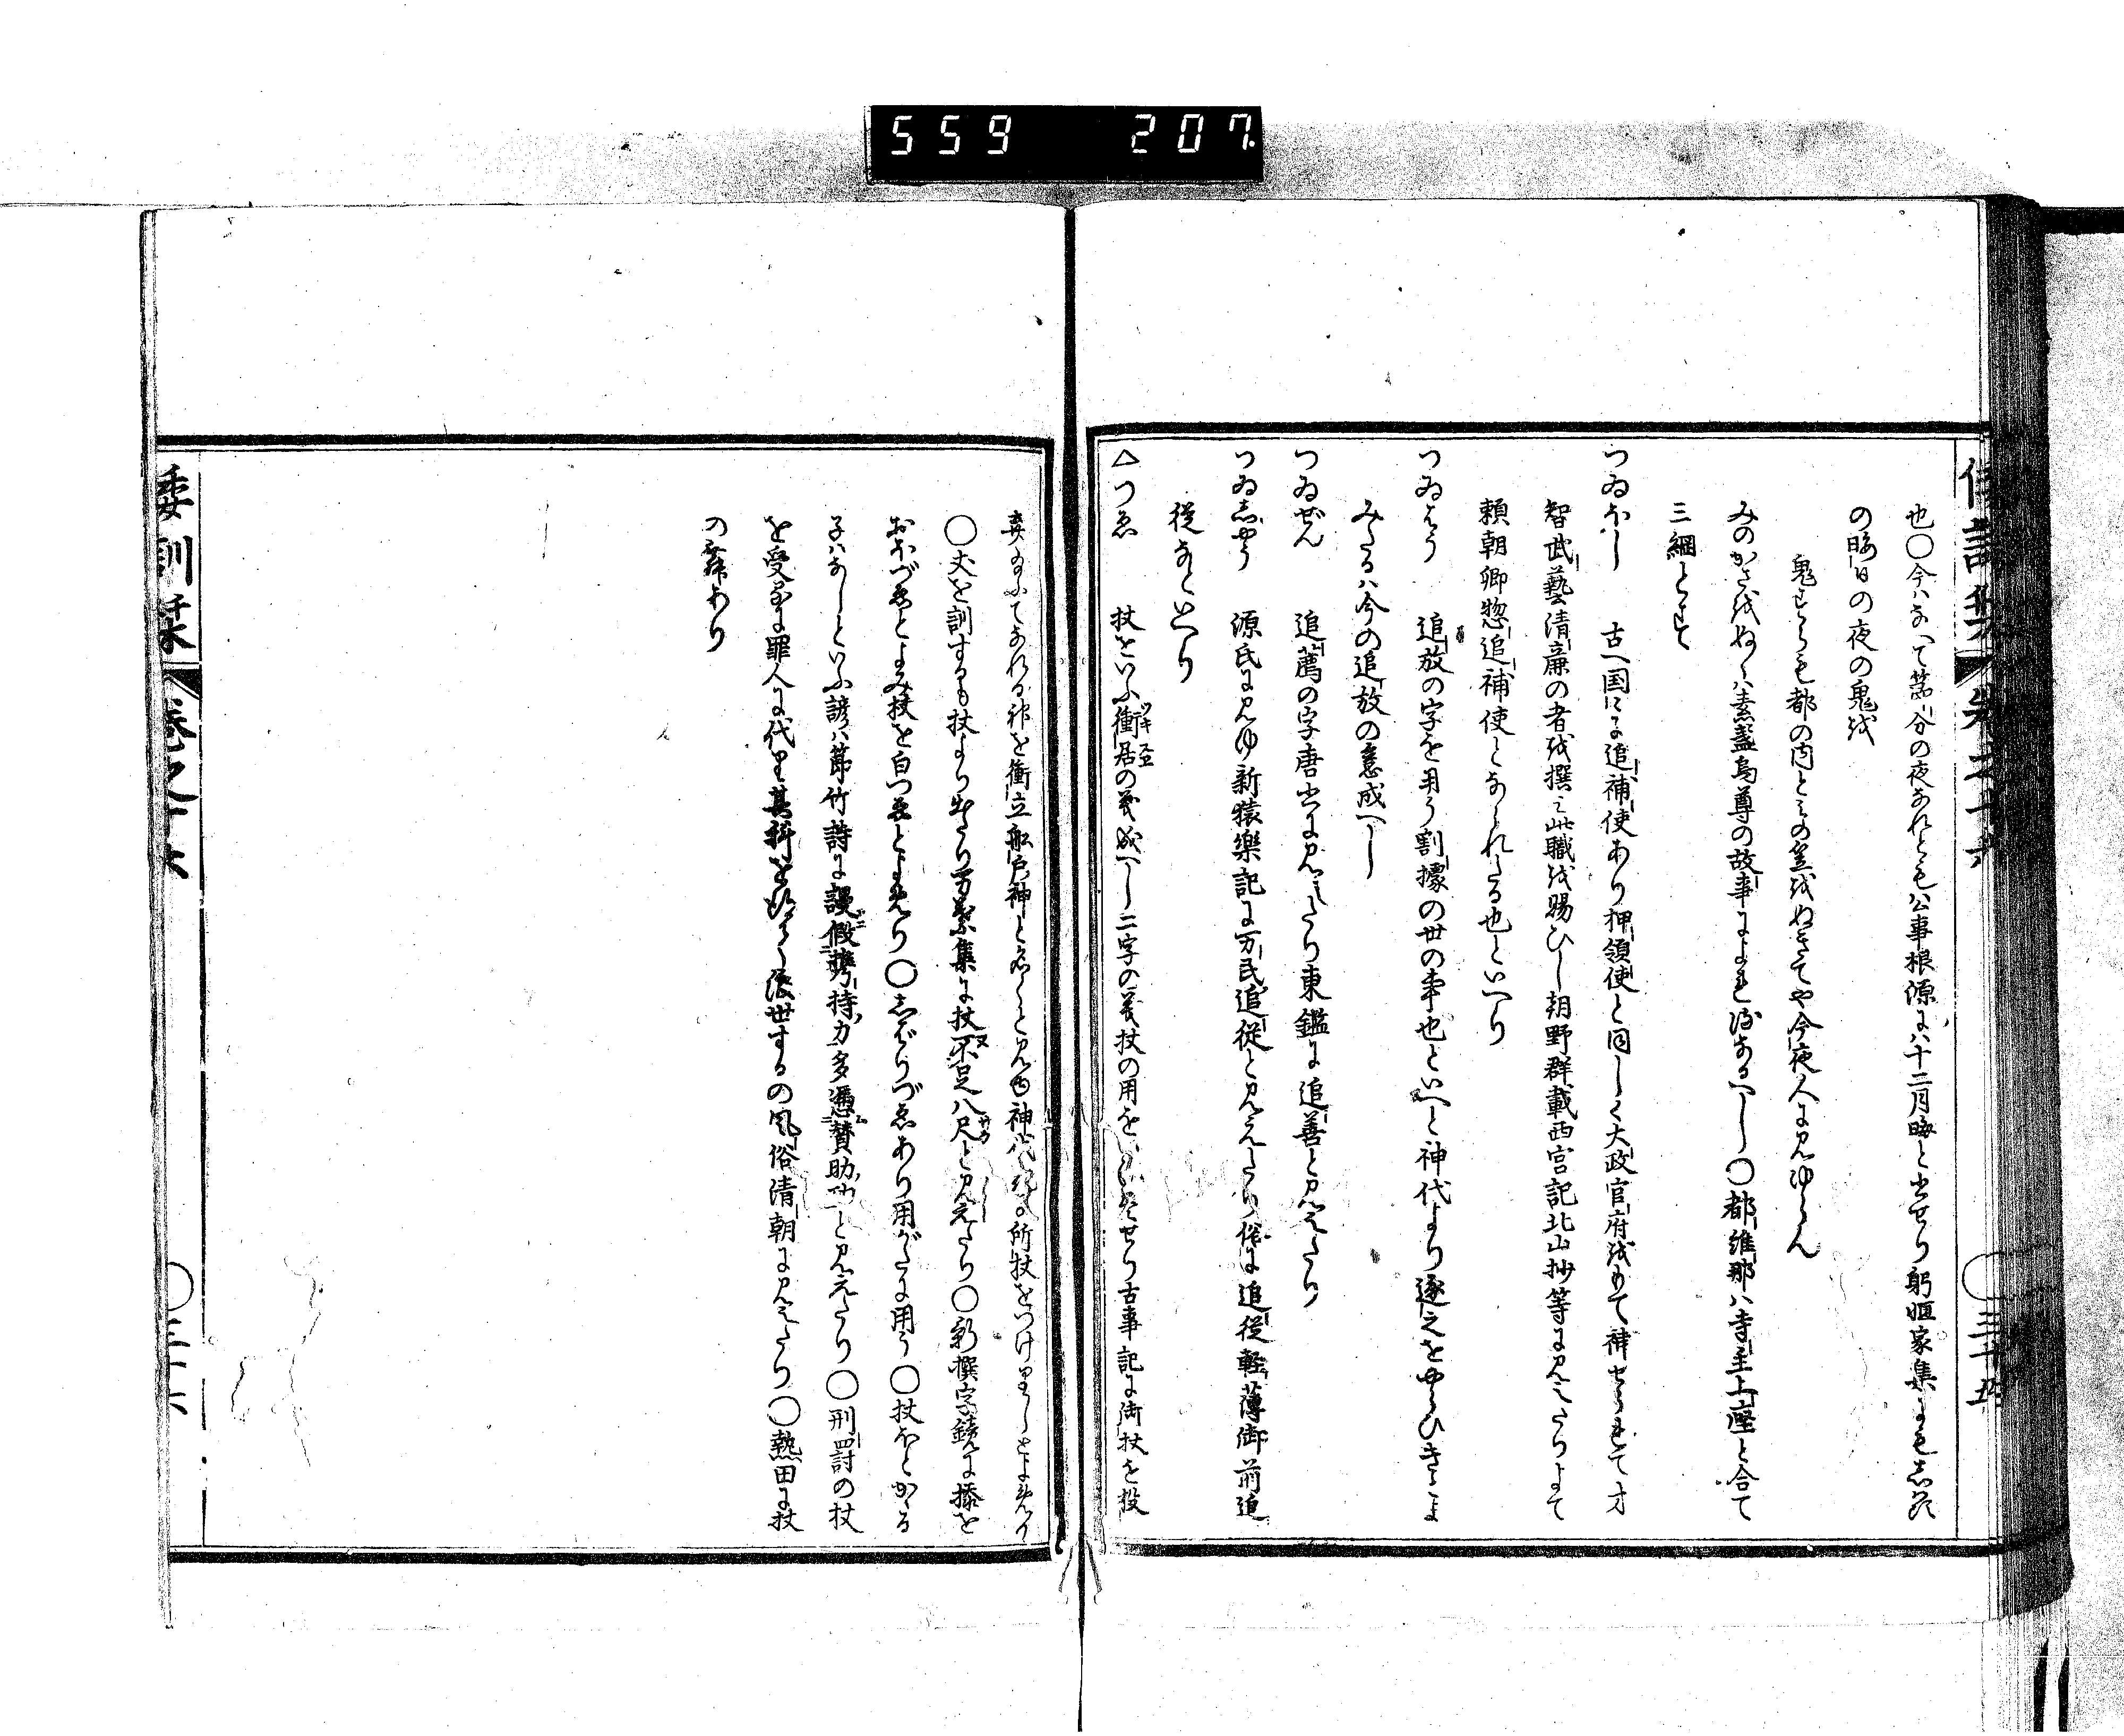 559 207
也〇今ハなへて節分の夜なれとも公事根源にハ十二月晦と出せり躬恒家集にもしはす
の晦日の夜の鬼を
鬼すらも都の内とみの笠をぬきてや今夜人に見ゆらん
みのかさをぬくハ素盞烏尊の故事によれるなるへし〇都維那ハ寺主上座と合て
三綱とす
つゐふし 古へ国々に追補使あり押領使と同しく大政官府をもて補せられて才
智武藝清廉の者を撰み此職を賜ひし朝野群載西宮記北山抄等に見えたりよて
頼朝卿惣追補使となられたる也といへり
つゐはう 追放の字を用う割據の世の事也といへと神代より逐之をやらひきとよ
みたるハ今の追放の意成へし
つゐぜん 追薦の字唐書に見えたり東鑑に追善と見えたり
つゐしやう 源氏に見ゆ新猿樂記に万民追従と見えたり俗に追従軽薄御前追
従なといへり
△つゑ 杖をいふ衝居の義成へし二字の義杖の用を せり古事記に御杖を投
棄るにてなれる神を衝立船戸神と名くと見ゆ神代 所杖をつけりしとよめり
〇丈を訓するも杖より出たり万葉集に杖不足八尺と見えたり〇新撰字鏡に  を
おふづゑとよみ杖を白つゑとよめり〇しばりづゑあり用がたに用う〇杖ほとかゝる
子ハなしといふ諺ハ節竹詩に謾假 持力多憑賛助功と見えたり〇刑罰の杖
を受るに罪人に代り其科を  く渡世するの風俗清朝に見えたり〇熱田に杖
の舞あり
倭訓栞 巻之十六 〇三十五
倭訓栞 巻之十六 〇三十六